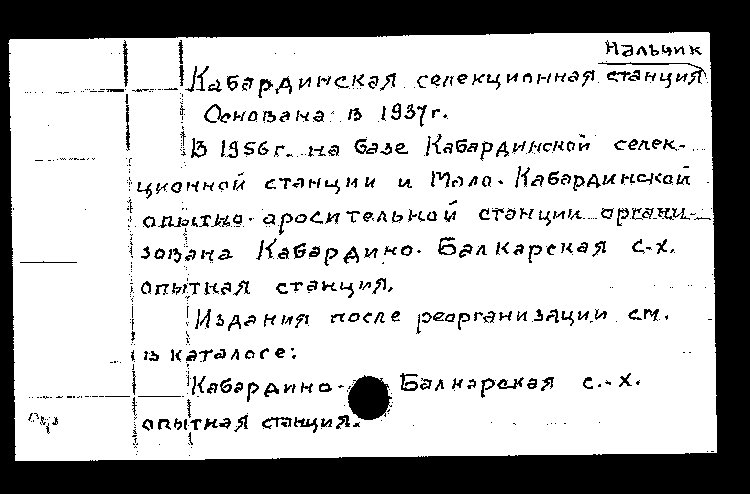 Нальчик
Кабардинская селекционная станция
Основана в 1937г.
В 1956г. на базе Кабардинской селек-
ционной станции и Мало-Кабардинской
опытно-оросительной станции органи-
зована Кабардино-Балкарская с-х.
опытная станция.
Издания после реорганизации см.
в каталосе:
Кабардино-Балкарская с.-х.
опытная станция.